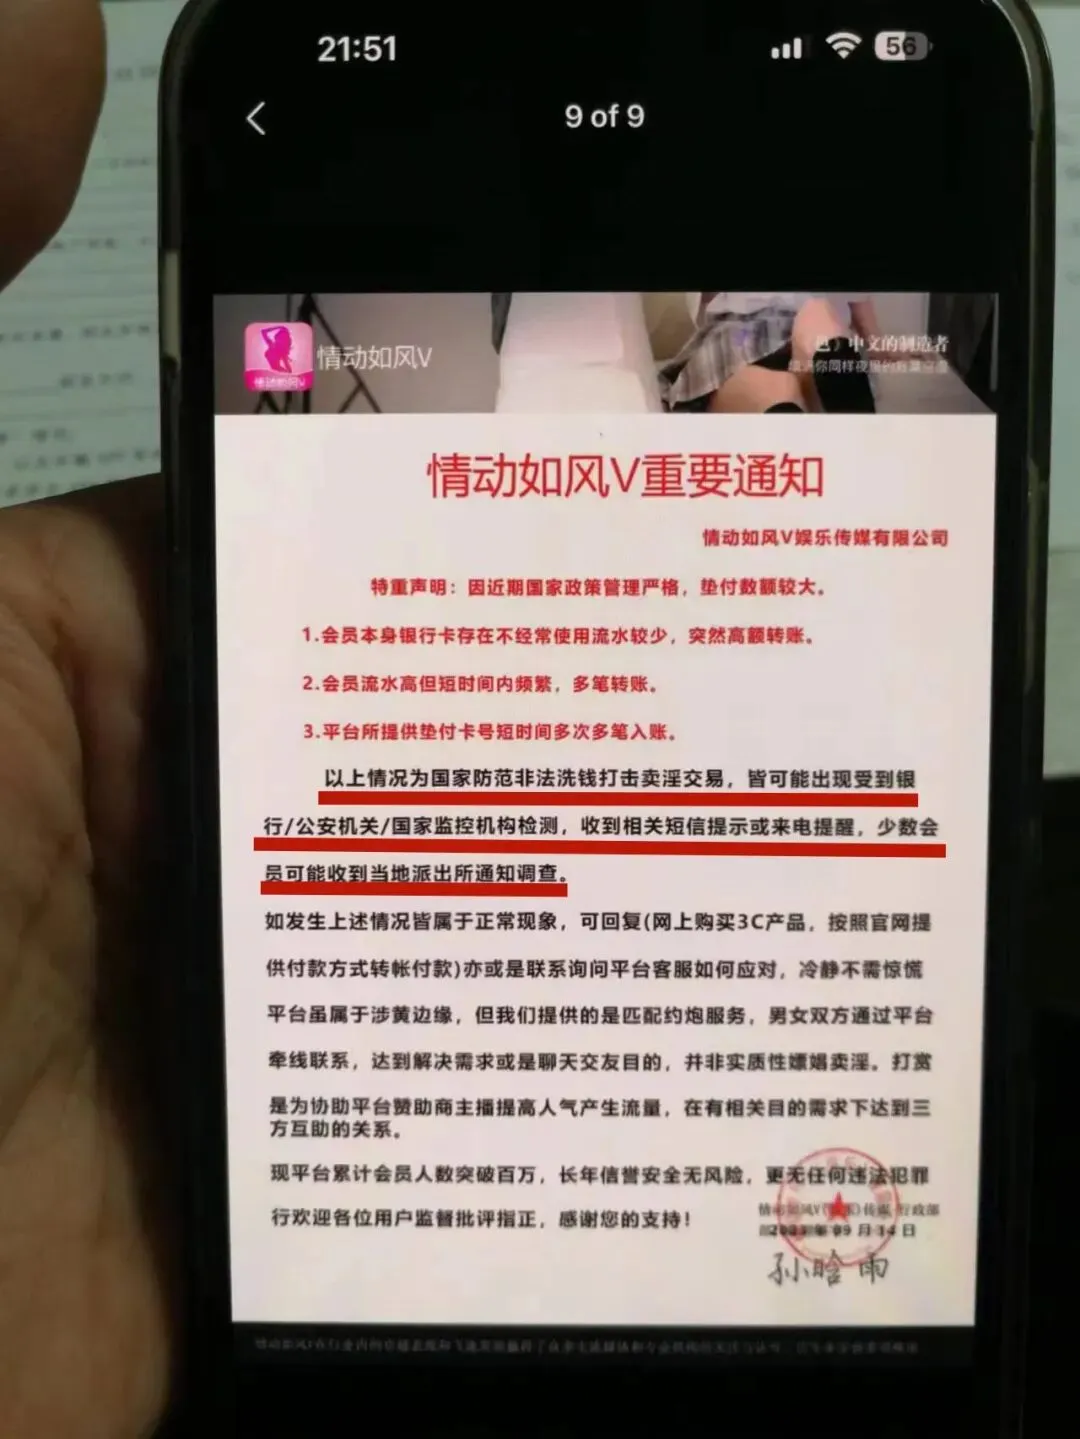 21:51
56
9 of 9
情动如风V
中文的制造者
情动如风V重要通知
情动如风V娱乐传媒有限公司
特重声明：因近期国家政策管理严格，垫付数额较大。
1.会员本身银行卡存在不经常使用流水较少，突然高额转账。
2.会员流水高但短时间内频繁，多笔转账。
3.平台所提供垫付卡号短时间多次多笔入账。
以上情况为国家防范非法洗钱打击卖淫交易，皆可能出现受到银
行/公安机关/国家监控机构检测，收到相关短信提示或来电提醒，少数会
员可能收到当地派出所通知调查。
如发生上述情况皆属于正常现象，可回复(网上购买3C产品，按照官网提
供付款方式转帐付款)亦或是联系询问平台客服如何应对，冷静不需惊慌
平台虽属于涉黄边缘，但我们提供的是匹配约炮服务，男女双方通过平台
牵线联系，达到解决需求或是聊天交友目的，并非实质性嫖娼卖淫。打赏
是为协助平台赞助商主播提高人气产生流量，在有相关目的需求下达到三
方互助的关系。
现平台累计会员人数突破百万，长年信誉安全无风险，更无任何违法犯罪
行欢迎各位用户监督批评指正，感谢您的支持！
情动如风V 传媒 行政部
年09月14日
孙晗雨